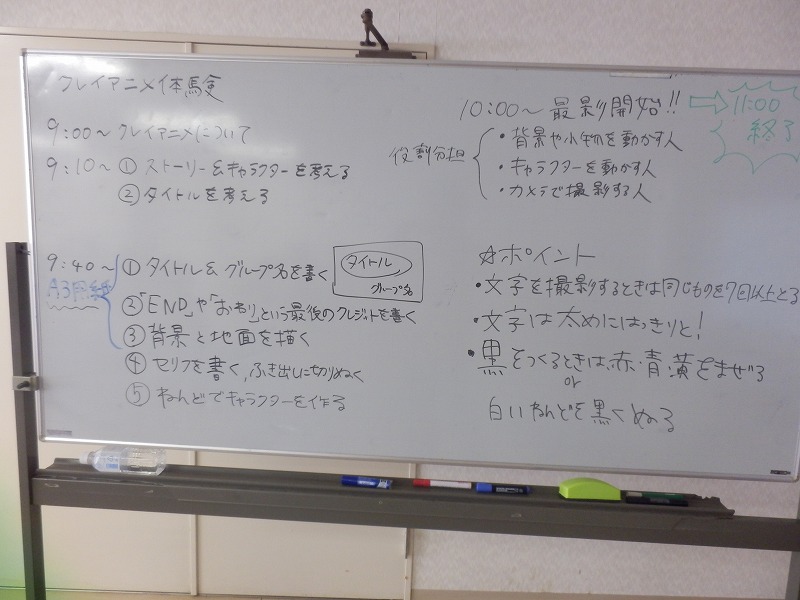 クレイアニメ体験
9:00~ クレイアニメについて
9:10~ ① ストーリー&キャラクターを考える
② タイトルを考える
9:40~ ① タイトル& グループ名を書く
タイトル
グループ名
A3用紙
②「END」や「おわり」という最後のクレジットを書く
③ 背景と地面を描く
④ セリフを書く,ふき出しに切りぬく
⑤ ねんどでキャラクターを作る
10:00~ 撮影開始!!
11:00
終了
役割分担
・背景や小物を動かす人
・キャラクターを動かす人
・カメラで撮影する人
☆ポイント
・文字を撮影するときは同じものを7回以上とる
・文字は太めにはっきりと!
・黒をつくるときは、赤・青・黄をまぜる
or
白いねんどを黒くぬる